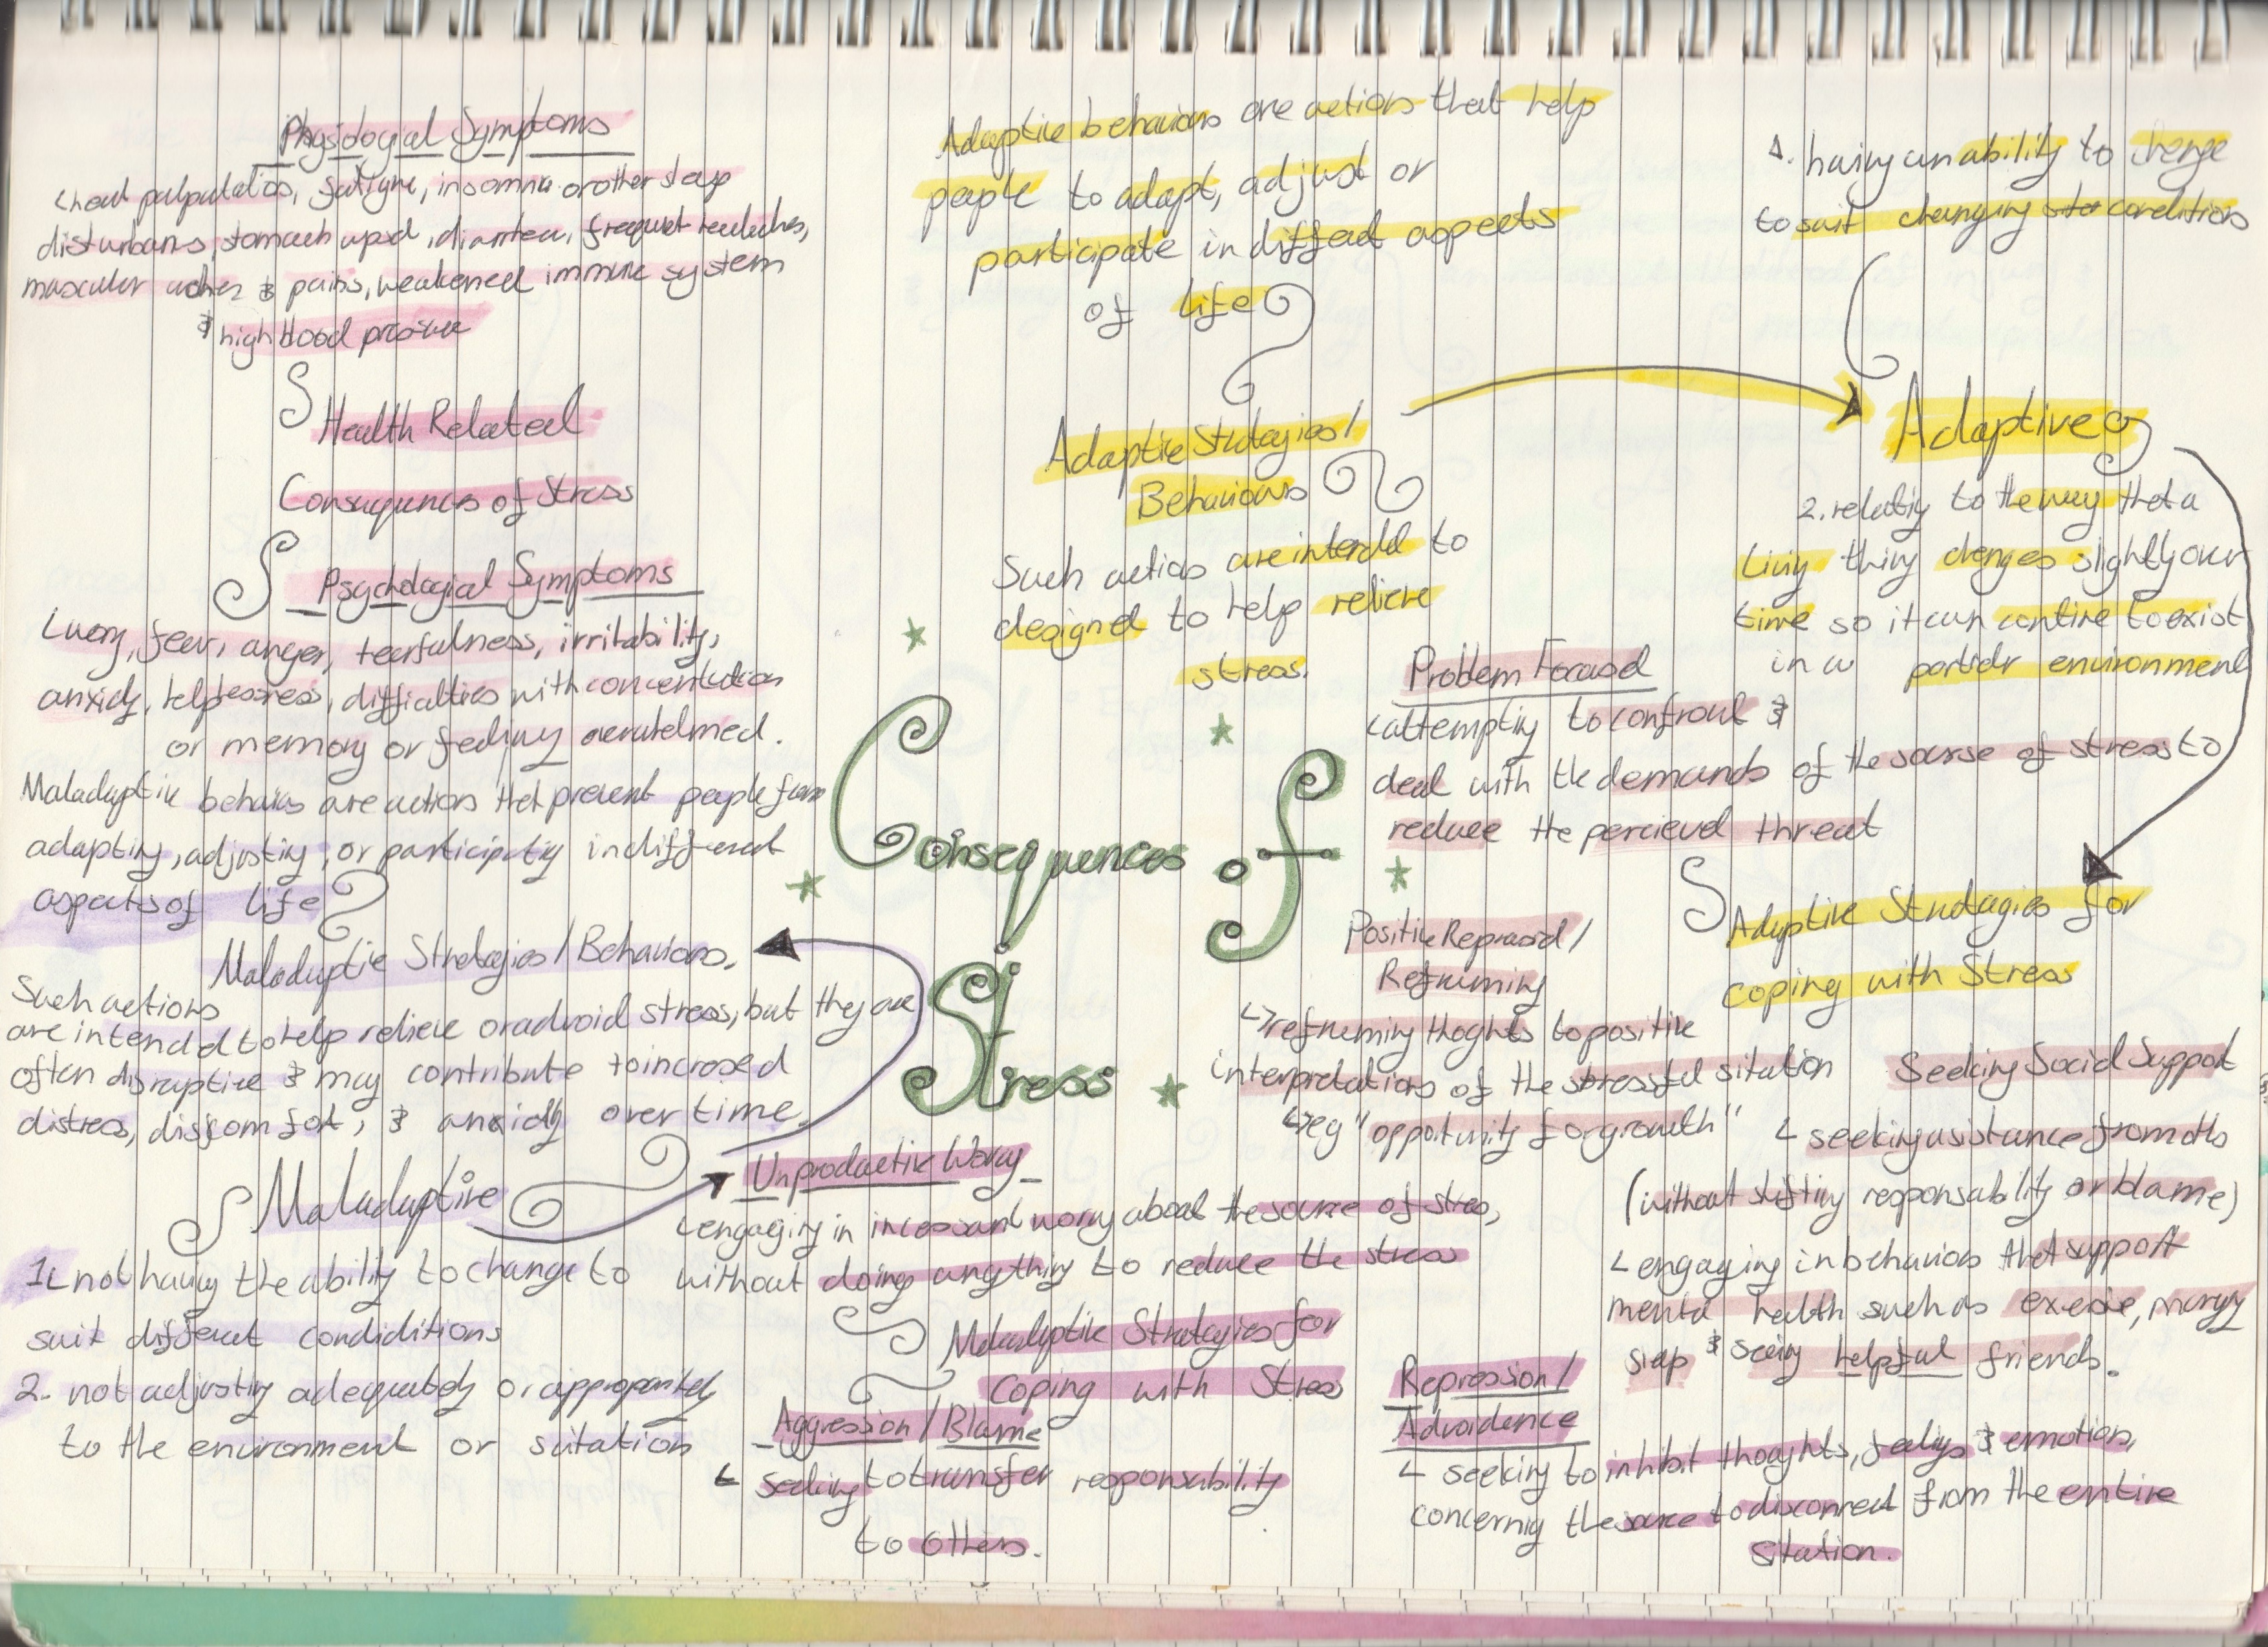 Physiological Symptoms
heart palpatatios, fatigue, insomnia or other sleep
disturbans, stomach upset, diarrhea, frequent headaches,
muscular aches & pains, weakened immune system
& high blood pressure
Health Related
Consequences of Stress
Psychological Symptoms
worry, fear, anger, tearfulness, irritability,
anxiety, helplessness, difficalties with concentration
or memory or feeling overwhelmed.
Maladaptive behaviors are actions that prevent people from
adapting, adjusting, or participating in different
aspects of life
Maladaptive Strategies / Behaviors.
Such actions
are intended to help relieve or advoid stress, but they are
often disruptive & may contribute to increased
distress, disscomfort, & anxiety over time.
Maladaptive
1. not having the ability to change to
suit different condiditions
2. not adjusting adequately or appropriately
to the environment or suitation
Adaptive behaviors are actions that help
people to adapt, adjust or
participate in different aspects
of life
Adaptive Strategies /
Behaviours
Such actions are intended to
designed to help relieve
stress.
Consequences of
Stress
1. having an ability to change
to suit changing conditions
Adaptive
2. relating to the way that a
living thing changes slightly over
time so it can continue to exist
in a particular environment
Problem Focused
attempting to confront &
deal with the demands of the sourse of stress to
reduce the percieved threat
Adaptive Strategies for
coping with Stress
Positive Reprasial /
Reframing
reframing thoghts to positive
interpretations of the stressful sitation
eg "opportunity for growth"
Seeking Social Support
seeking asistance from others
(without shifting responsability or blame)
engaging in behaviors that support
mental health such as exersise,
sleep & seeing helpful friends.
Unproductive Worry
engaging in incessant worry about the source of stress,
without doing anything to reduce the stress
Maladaptive Strategies for
coping with Stress
Aggression / Blame
seeking to transfer responsability
to others.
Repression /
Advoidence
seeking to inhibit thoughts, feelings & emotions,
concerning the source to disconnect from the entire
sitation.